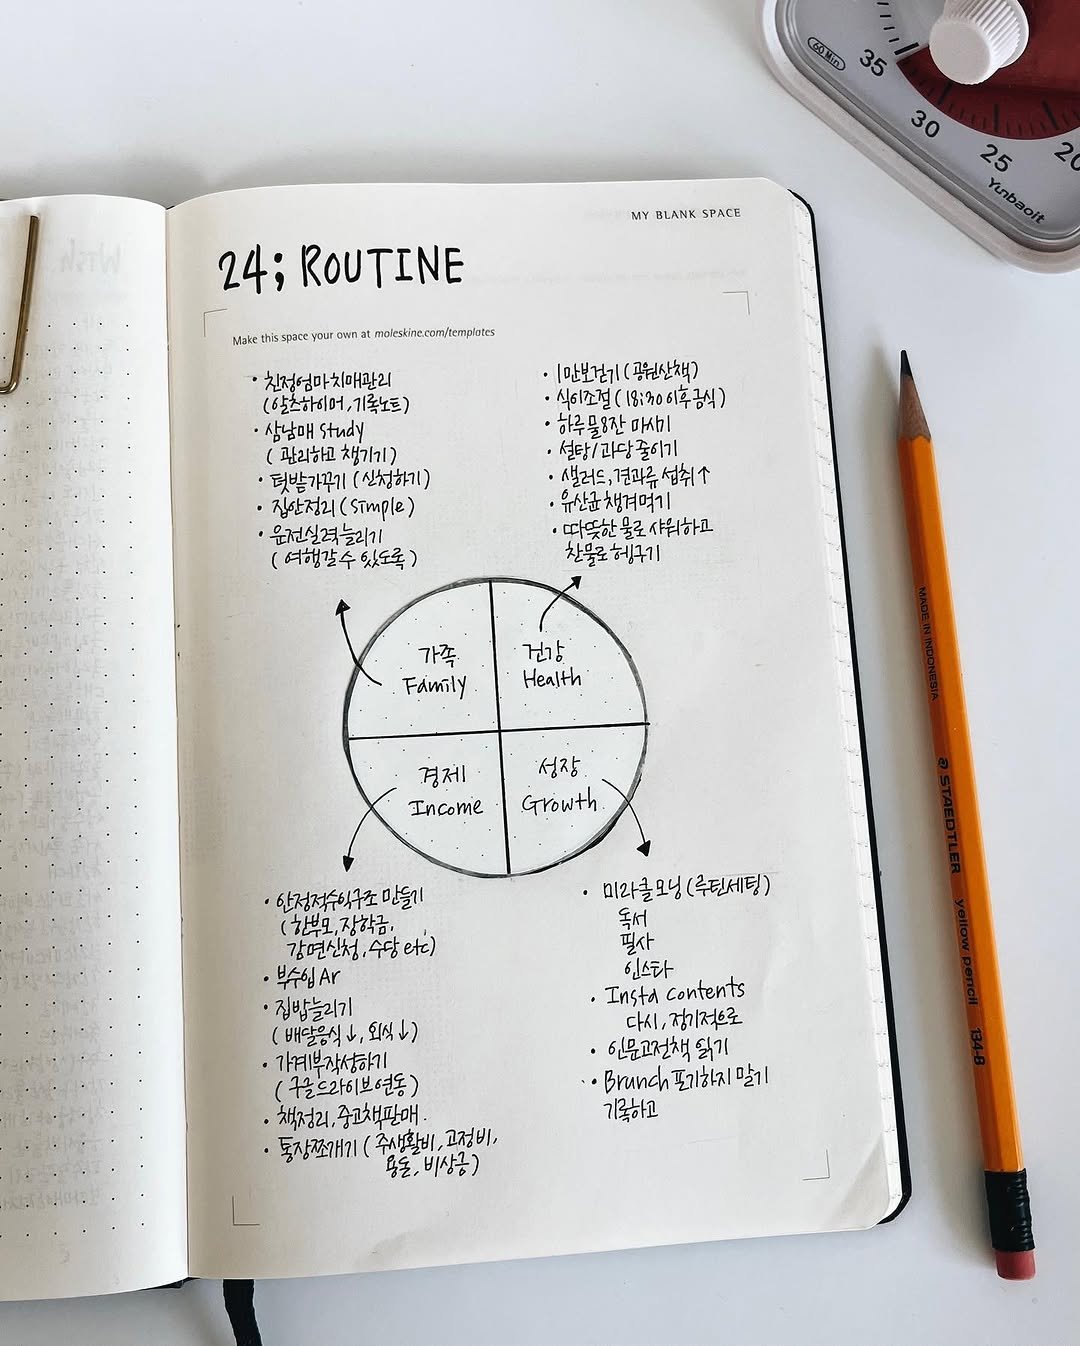 MY BLANK SPACE
24; ROUTINE
Make this space your own at moleskine.com/templates
• 친정엄마치매관리
(알츠하이머, 기록노트)
• 삼남매 study
(관리하고 챙기기)
• 텃밭가꾸기 (신청하기)
• 집안정리 (simple)
• 운전실력늘리기
(여행갈 수 있도록)
• 1만보걷기 (공원산책)
• 식이조절 (18:30 이후금식)
• 하루물8잔 마시기
• 설탕/과당 줄이기
• 샐러드, 견과류 섭취↑
• 유산균 챙겨먹기
• 따뜻한 물로 샤워하고
찬물로 헹구기
가족
Family
건강
Health
경제
Income
성장
Growth
• 안정적수익구조 만들기
(한부모, 장학금,
감면신청, 수당 etc)
• 부수입 Ar
• 집밥늘리기
(배달음식↓, 외식↓)
• 가계부작성하기
(구글드라이브연동)
• 책정리, 중고책판매.
• 통장쪼개기 (주생활비, 고정비,
용돈, 비상금)
• 미라클모닝 (루틴세팅)
독서
필사
인스타
• Insta contents
다시, 정기적으로
• 인문고전책 읽기
• Brunch 포기하지 말기
기록하고
60 Min
35
30
25
20
Yunbaoit
MADE IN INDONESIA
STAEDTLER
yellow pencil
134-B